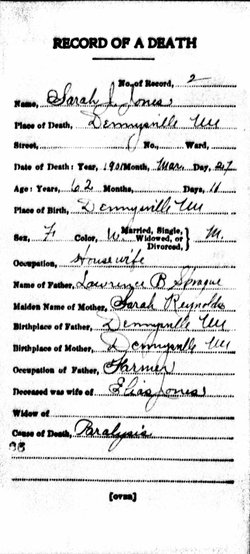 RECORD OF A DEATH
No. of Record, 2
Name, Sarah J. Jones
Place of Death, Dennysville Me
Street, No., Ward.
Date of Death: Year, 1901 Month, Mar. Day, 27
Age: Years, 62 Months, Days, 11
Place of Birth, Dennysville Me
Sex, F Color, W. Married, Single, Widowed, or Divorced, } M.
Occupation, Housewife
Name of Father, Lawrence B Sprague
Maiden Name of Mother, Sarah Reynolds
Birthplace of Father, Dennysville Me
Birthplace of Mother, Dennysville Me
Occupation of Father, Farmer
Deceased was wife of, Elias Jones
Widow of
Cause of Death, Paralysis
(over)